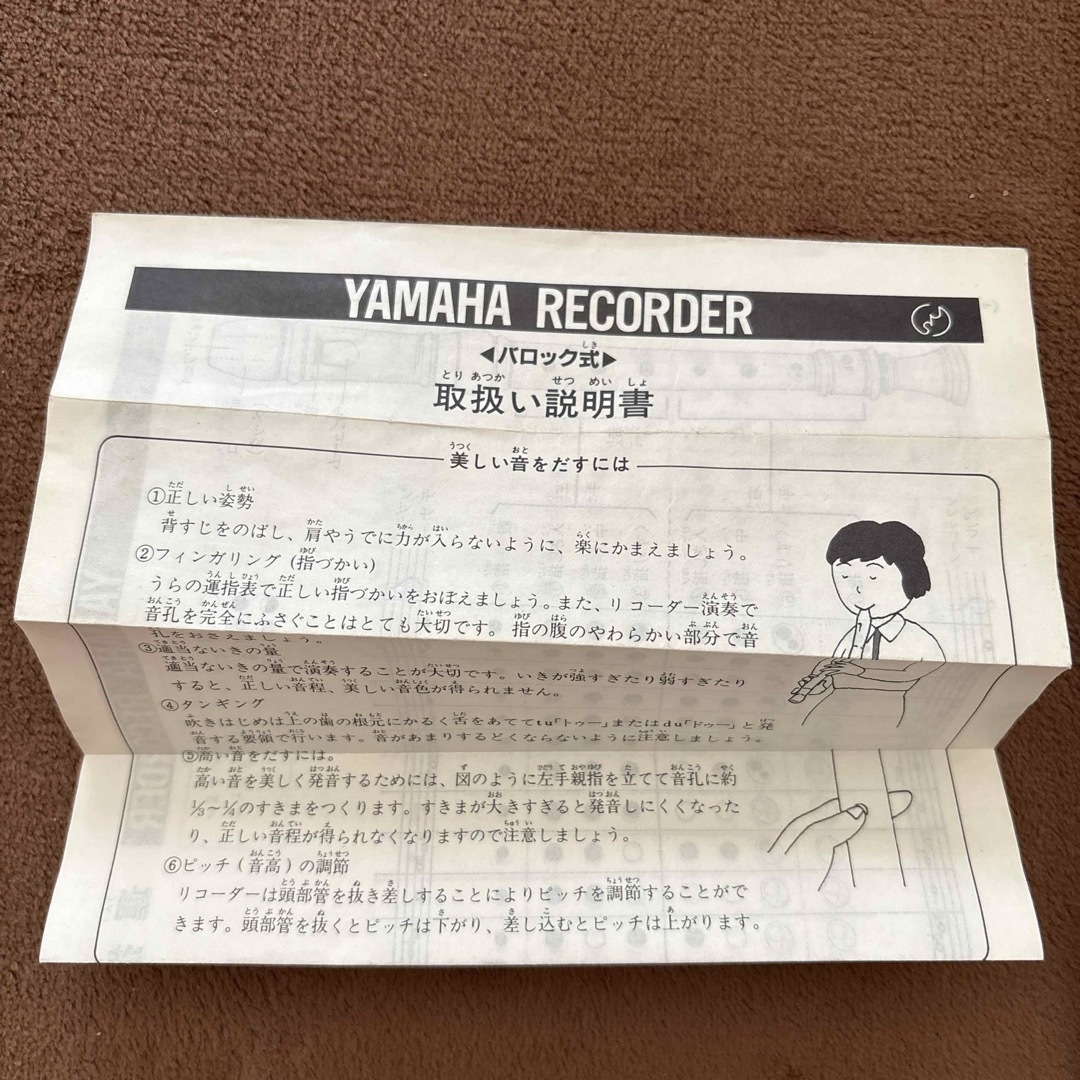 YAMAHA RECORDER
◀バロック式▶
取扱い説明書
美しい音をだすには
①正しい姿勢
背すじをのばし、肩やうでに力が入らないように、楽にかまえましょう。
②フィンガリング(指づかい)
うらの運指表で正しい指づかいをおぼえましょう。また、リコーダー演奏で
音孔を完全にふさぐことはとても大切です。指の腹のやわらかい部分で音
孔をおさえましょう。
③適当ないきの量
適当ないきの量で演奏することが大切です。いきが強すぎたり弱すぎたり
すると、正しい音程、美しい音色が得られません。
④タンギング
吹きはじめは上の歯の根元にかるく舌をあててtu「トゥー」またはdu「ドゥー」と発
音する要領で行います。音があまりするどくならないように注意しましょう。
⑤高い音をだすには。
高い音を美しく発音するためには、図のように左手親指を立てて音孔に約
⅓~¼のすきまをつくります。すきまが大きすぎると発音しにくくなった
り、正しい音程が得られなくなりますので注意しましょう。
⑥ピッチ(音高)の調節
リコーダーは頭部管を抜き差しすることによりピッチを調節することがで
きます。頭部管を抜くとピッチは下がり、差し込むとピッチは上がります。